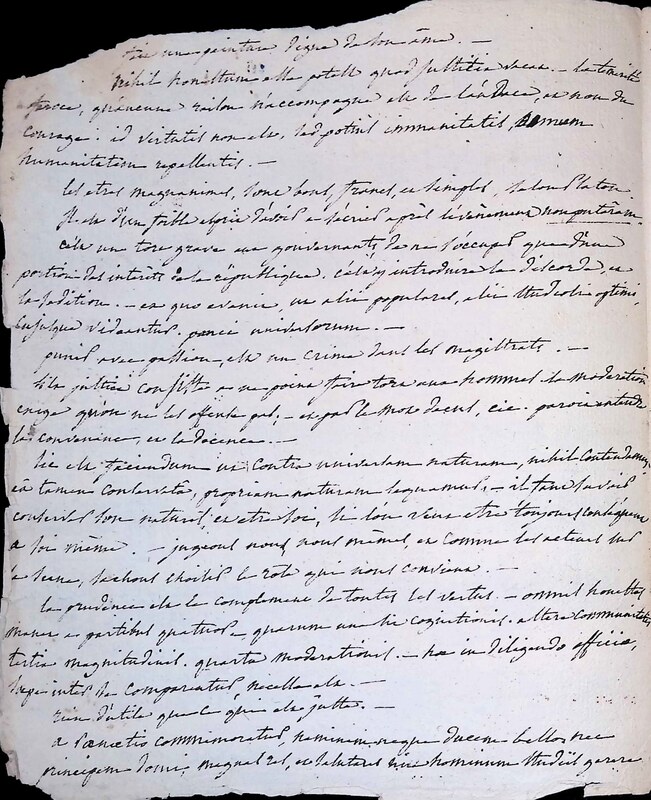 faire une peinture digne de son âme. —
nihil honestum esse potest quod justitia vacat. — la témérité
féroce, qu'aucune raison n'accompagne est de l'audace, et non du
courage: id virtutis non est, sed potius immanitatis, omnem
humanitatem repellentis. —
les etres magnanimes, sont bons, francs, et simples, selon
il est d'un foible esprit d'être après l'évènement non putâram
c'est un tort grave aux gouvernants, de ne s'occuper que d'une
portion des intérêts de la république. c'est y introduire la discorde, et
la sédition. — ex quo evenit, ut alii populares, alii studiosi optimi,
cujusque videantur. pauci universorum. —
punir avec passion, est un crime dans les magistrats. —
si la justice consiste à ne point faire tort aux hommes la modération
exige qu'on ne les offense pas; — et par le mot decus, cic. paroit entendre
la convenance, et la décence. —
sic est faciendum ut contra universam naturam, nihil contendamus,
ea tamen conservata, propriam naturam sequamur; — il faut savoir
conserver son naturel, et etre soi, si l'on veut etre toujours conséquent
a soi même. — jugeons nous, nous mêmes, et comme les acteurs sur
la scene, sachons choisir le role qui nous convient. —
la prudence est le complement de toutes les vertus. — omnis honestas
manat a partibus quatuor, quarum una sit cognitionis. altera communitatis
tertia magnitudinis. quarta moderationis. — hae in diligendo officio,
saepe inter se comparentur, necesse est. —
rien d'utile que ce qui est juste. —
a Panaetio commemoratur, neminem neque ducem belli, nec
principem domi, magnas res, et salutares sine hominum studiis gerere